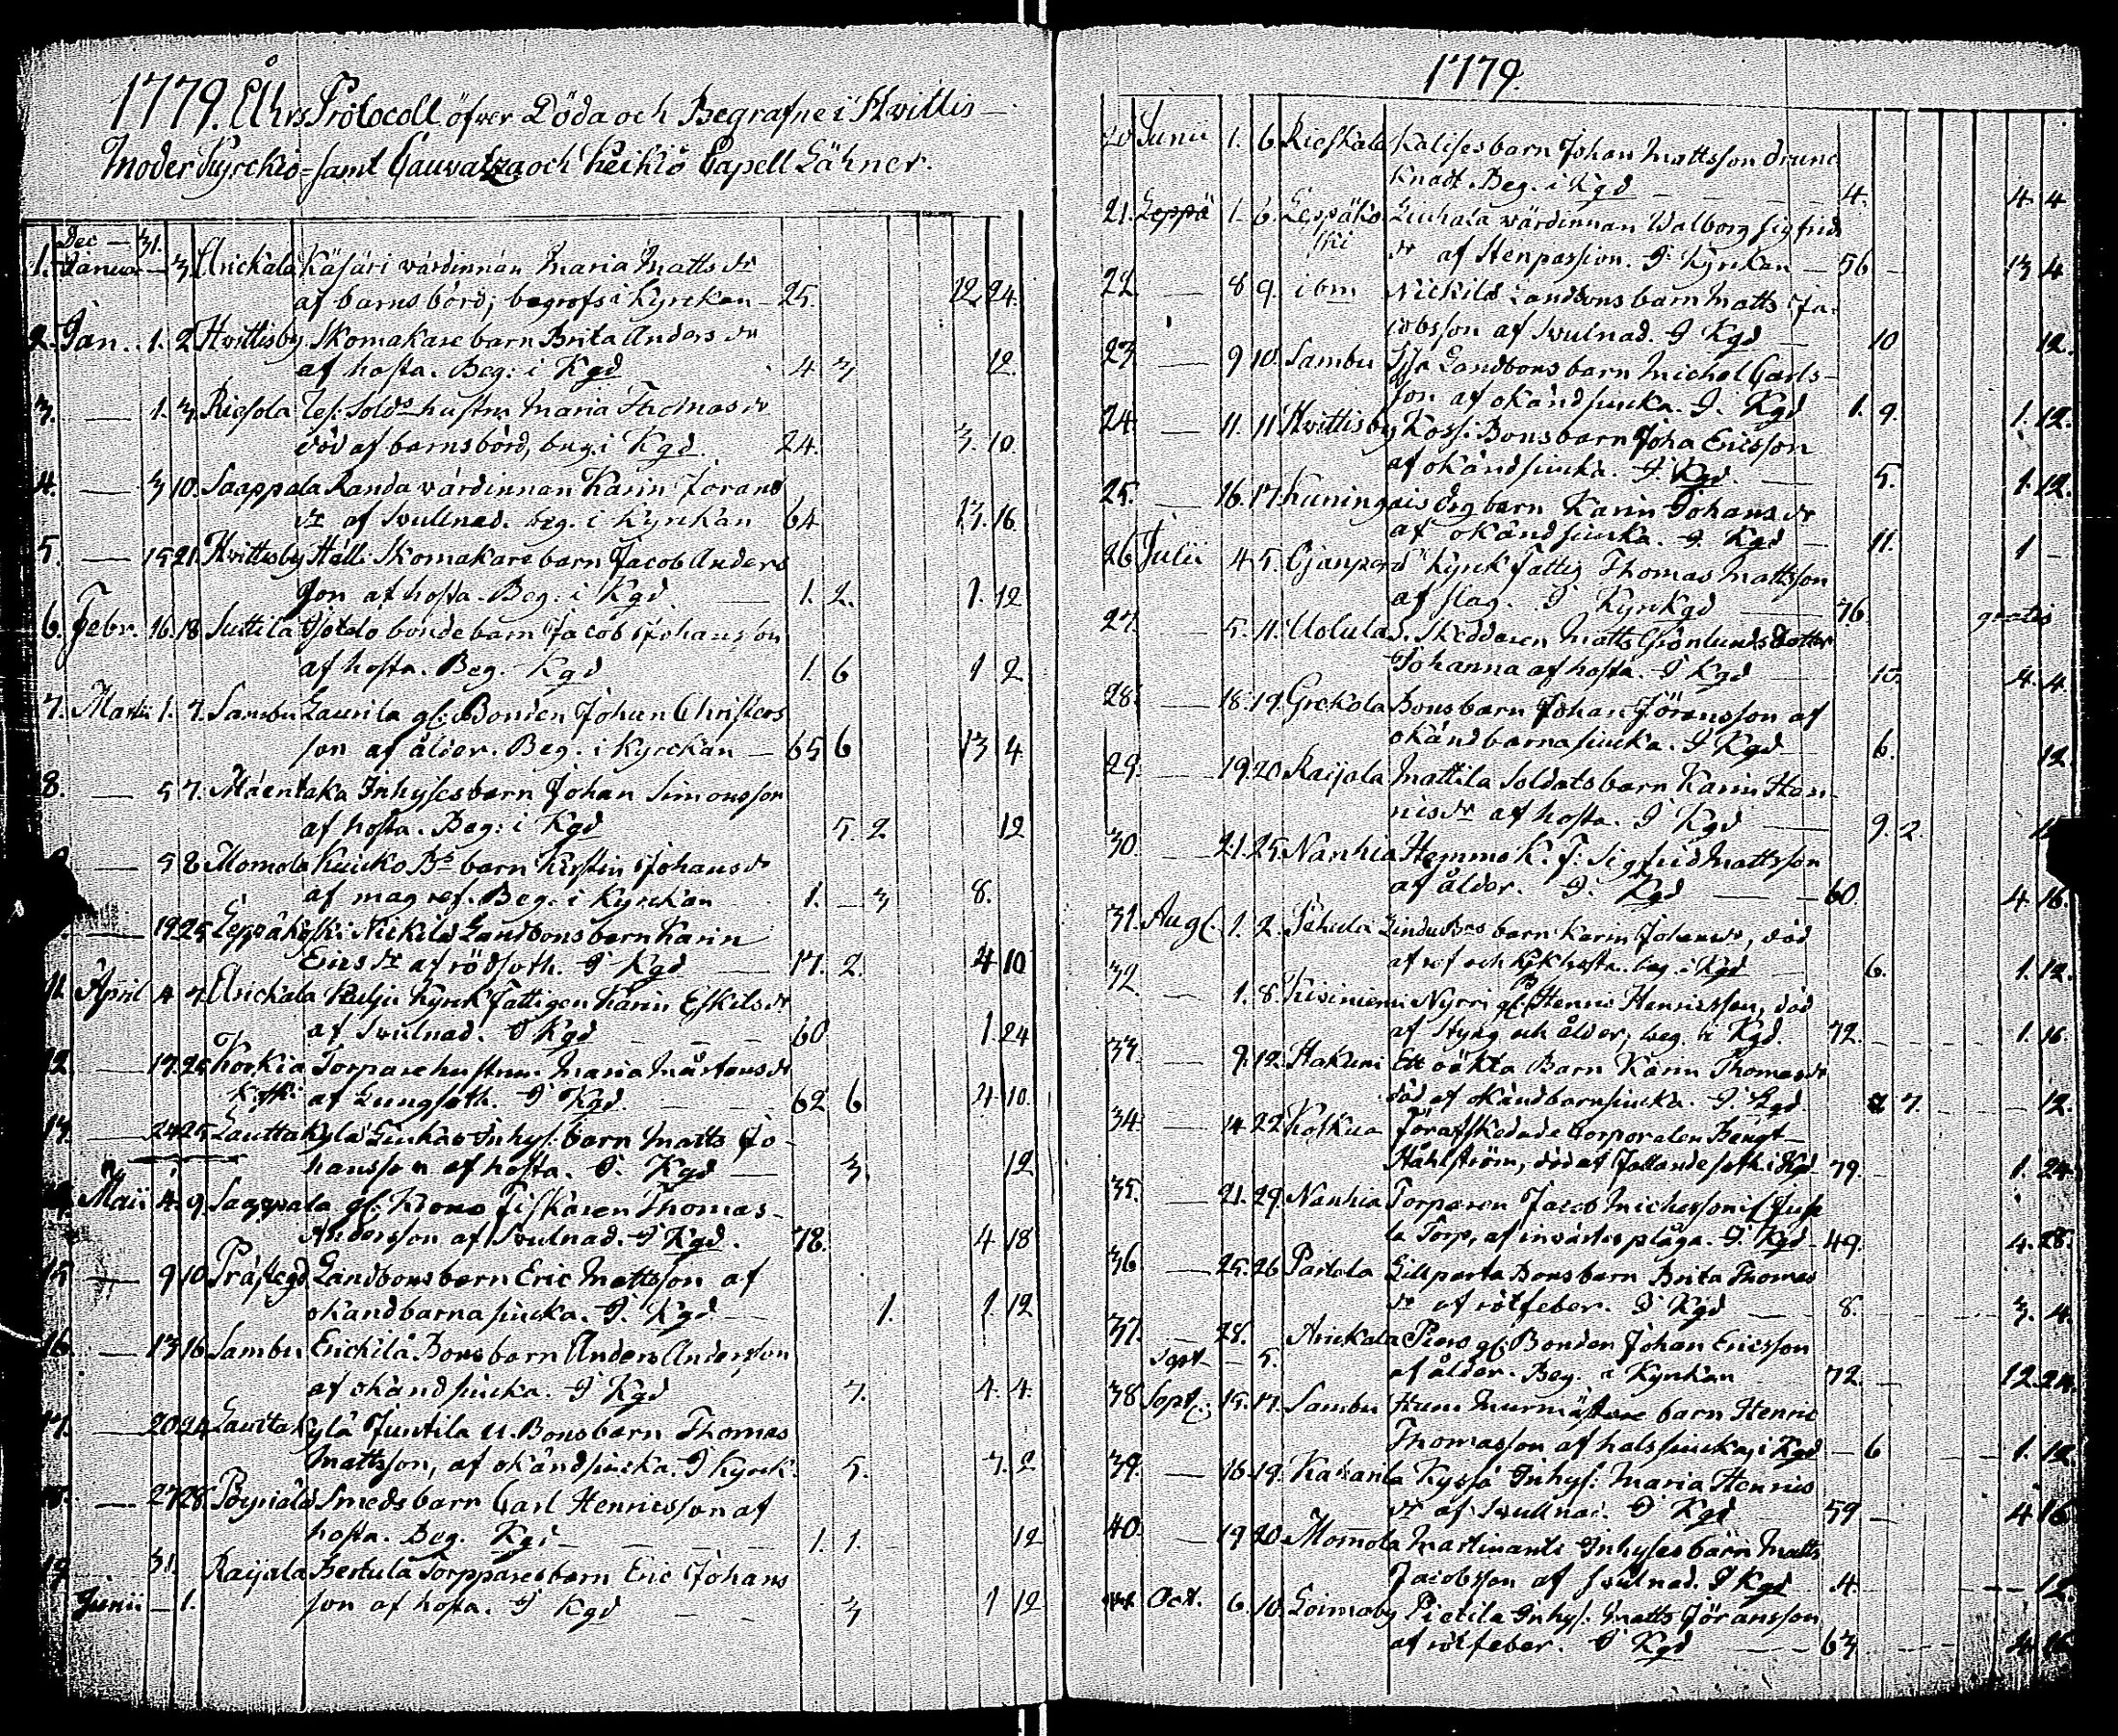 1779. Åhrs Protocoll öfver Döda och Begrafne i Hvittis
Moder Kyrckio- samt Cauvatza och Keikiö Capell Gähner.
Dec — 31.
1. Januar — 3. Arickala Käsäri värdinnan Maria Matts dr
af barnsbörd; begrofs i Kyrckan — 25. 12. 24.
2. Jan. 1. 2 Hvittisby Skomakare barn Brita Anders dr
af hosta. Beg: i Kgd 4 3 12.
3. — 1. 3. Riesola Res: Solds hustru Maria Thomas dr
död af barnsbörd, beg. i Kgd. 24. 3. 10.
4. — 3 10. Saappala Randa värdinnan Karin Jörans
dr af Svullnad. beg. i Kyrckan 64 13. 16
5. — 15 21. Hvittisby Hälli Skomakare barn Jacob Anders
son af hosta. Beg: i Kgd. 1. 2. 1. 12
6. Febr. 16. 18. Suttila bonde barn Jacob Johansson
af hosta. Beg. Kgd 1. 6 1 2
7. Martii 1. 7. Sambu Laurila gl: Bonden Johan Christers
son af ålder. Beg. i Kyrckan — 65 6 13 4
8. — 5 7. Mäentaka Inhyses barn Johan Simonsson
af hosta. Beg: i Kgd 5. 2 12
— 5 8 Momola Kuicko Bs barn Kirstin Johans dr
af magref. Beg. i Kyrckan 1. — 3 8.
— 19 25 Leppäkoski Nickilä Landbons barn Karin
Erics dr af rödsoth. I Kgd — 17. 2. 4 10
11. April 4 7. Arickala Kulju Kyrck Fattigen Karin Eskils dr
af Svulnad. I Kgd — — — 60 1. 24
12. — 17. 25 Korkia Torpare hustrun Maria Mårtens dr
koski af Lungsoth. I Kgd. — — 62 6 4. 10.
13. — 24 25 Lauttakylä Liukas Inhys: barn Matts Jo-
hansson af hosta. I. Kgd — 3. 12
Maii 4. 9 Saappala gl: Krono Fiskaren Thomas
Andersson af Svulnad. I Kgd. 78. 4 18
15 — 9 10 Prästgd Landbons barn Eric Mattsson af
okänd barnasiucka. I. Kgd — 1. 1. 12
16. — 13 16 Sambu Erickilä Bons barn Anders Andersson
af okänd siucka. I Kgd 7. 4. 4.
17. — 20 24 Lauttakylä Juntila U. Bons barn Thomas
Mattsson, af okänd siucka. I Kyrck. 5. 3. 2
— 27 28. Pöyriälä Smeds barn Carl Henricsson af
hosta. Beg. Kgd — — — 1. 1. 12
19 31. Raijala Bertula Torppares barn Eric Johans
Junii — 1. son af hosta. I Kgd — 3 1 12
1779.
20 Junii 1. 6. Rieskala Kalises barn Johan Mattsson drunc
knadt. Beg. i Kgd — — 4. 4. 4
21. Leppä 1. 6. Leppäko Liuhala värdinnan Walborg Sigfrids
ski dr af Henpassion. I Kyrckan — 56 — 13 4
22. — 8 9. ibm Nickilä Landbons barn Matts Ja-
cobsson af Svulnad. I Kgd — 10 12.
23. — 9 10. Sambu Landbons barn Michel Carls-
son af okänd siucka. I. Kgd 1. 9. 1. 12.
24. — 11. 11 Hvittisby Kossi Bons barn Joha Ericsson
af okänd siucka. I. Kgd. — 5. 1. 12.
25. — 16. 17 Kuningais barn Karin Johans dr
af okänd siucka. I. Kgd — 11. 1 -
26 Julii 4 5. Ojanperä Kyrck Fattig Thomas Mattsson
af slag. I KyrKgd — 76. gratis
27. — 5. 11. Uolula S. Skeddaren Matts Grönlunds Dotter
Johanna af hosta. I Kgd — 10. 4. 4.
28. — 18. 19. Grekola Bons barn Johan Jöransson af
okänd barnasiucka. I Kgd — 6. 12
29. — 19 20 Raijala Mattila Soldats barn Karin Hen-
rics dr af hosta. I Kgd — 9. 2.
30. — 21. 25. Nanhia Hemmo K. F. Sigfrid Mattsson
af ålder. I. Kgd — 60. 4 16.
31. Aug. 1. 2. Pehula Lindu Bns barn Karin Johans dr, död
af ref och Kikhosta. beg. i Kgd — 6. 1. 12.
32. — 1. 8. Kiviniemi Nyrri gl: Henric Henricsson, död
af Styng och ålder; beg. i Kgd. 72. 1. 16.
33. — 9. 12. Hakuni Ett oäkta Barn Karin Thomas dr
död af okänd barnsiucka. I. Kgd. 7. 12.
34. — 14 22 Koskua Förafskedade Corporalen Bengt
Ståhlström, död af fallande soth i Kgd. 79. — 1. 24.
35. — 21. 29. Nanhia Torparen Jacob Michelsson i
la Torp, af invärtes plåga. I. Kgd — 49. 4. 28.
36 — 25. 26 Partola Lillparta Bons barn Brita Thomas
dr af rötfeber. I Kgd — 8. 3. 4.
37. — 28. Arickala Piero gl: Bonden Johan Ericsson
Sept — 5. af ålder. Beg. i Kyrckan 72. — 12. 24.
38 Sept. 15. 17. Sambu Murmästare barn Henric
Thomasson af halssiucka, i Kgd — 6 1. 12.
39. — 16. 19. Kakarila Kyssä Inhys: Maria Henrics
dr af Svullnad. I Kgd 59 4 16
40. — 19 20. Momola Martinanti Inhyses barn Matts
Jacobsson af Svulnad. I Kgd 4. 12.
Oct. 6. 10. Loimaby Pietila Inhys: Matts Jöransson
af rötfeber. I Kgd — 63 4 16